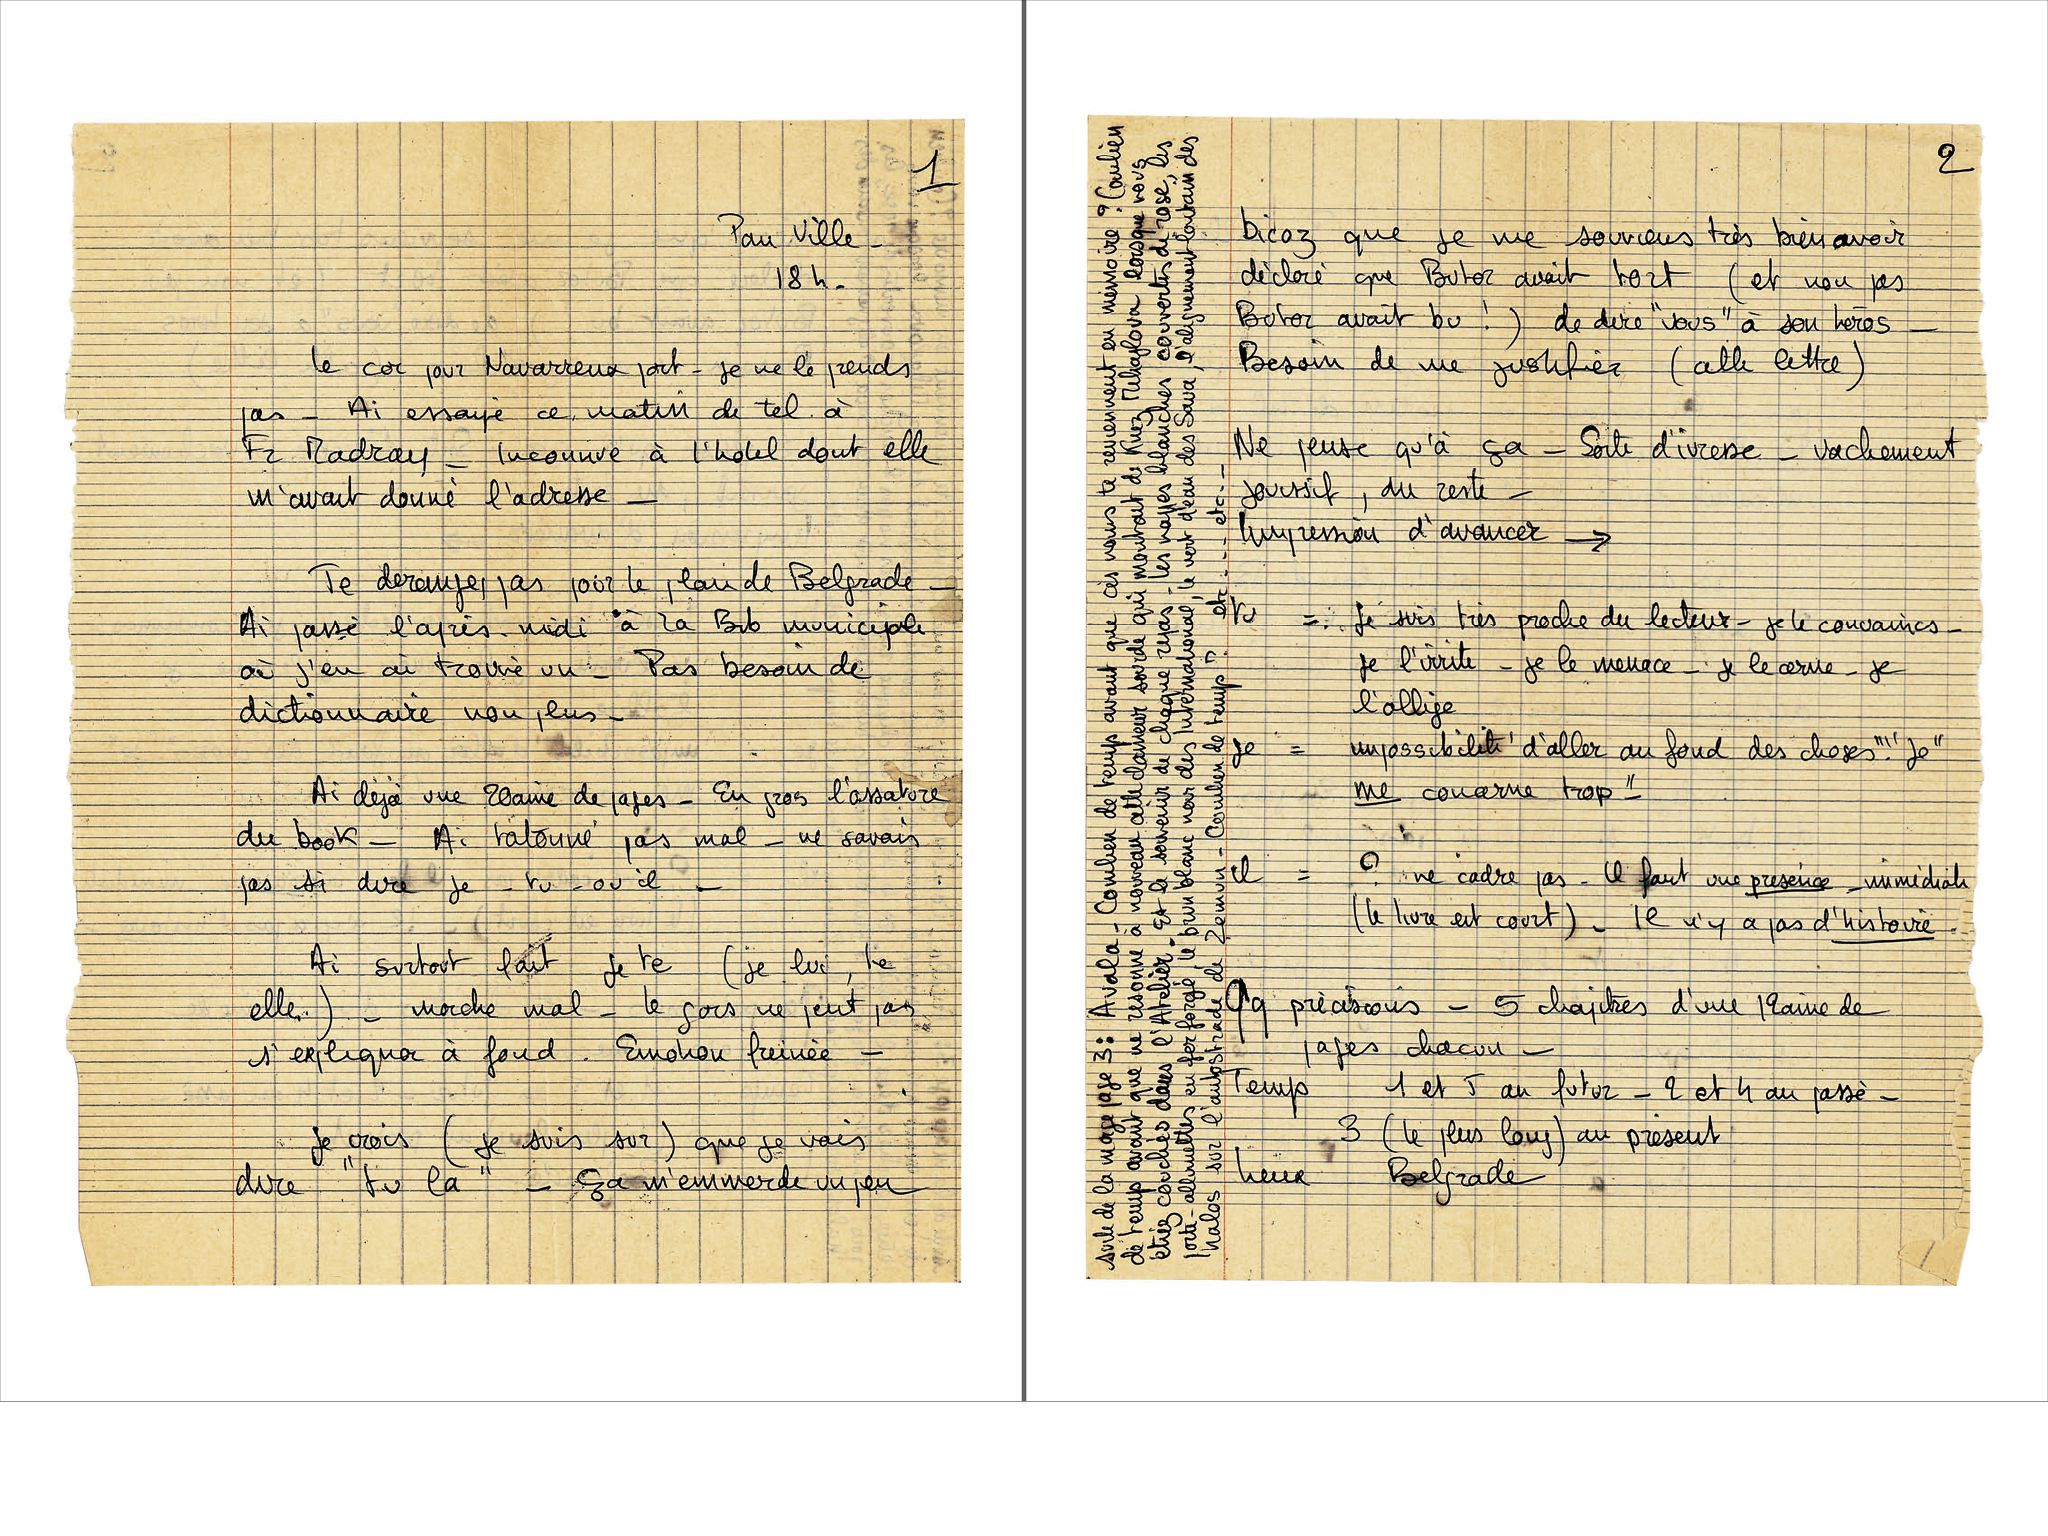 1
Pau Ville -
18 h.
le car pour Navarrenx part - je ne le prends
pas - Ai essayé ce matin de tel à
Fr Madray - Inconnue à l'hotel dont elle
m'avait donné l'adresse -
Te deranges pas pour le plan de Belgrade -
Ai passé l'après-midi à la Bib municiple
où j'en ai trouvé un - Pas besoin de
dictionnaire non plus -
Ai déjà une 20aine de pages - En gros l'ossature
du book - Ai tatonné pas mal - ne savais
pas si dire je - tu - ou il -
Ai surtout fait je te (je lui, te
elle..) - marche mal - le gars ne peut pas
s'expliquer à fond. Emotion freinée -
Je crois (je suis sur) que je vais
dire "tu la" - ça m'emmerde un peu
2
bicoz que je me souviens très bien avoir
déclaré que Butor avait tort (et non pas
Butor avait bu !) de dire "vous" à son héros -
Besoin de me justifier (cette lettre)
Ne pense qu'à ça - Sorte d'ivresse - vachement
jouissif, du reste -
Impression d'avancer →
tu = je suis très proche du lecteur - je le convaincs -
je l'irrite - je le menace - je le cerne - je
l'afflige
je = impossibilité d'aller au fond des choses "'Je"
me concerne trop"
il = ? ne cadre pas - Il faut une présence immédiate
(le livre est court) - Il n'y a pas d'histoire.
Qq précisions - 5 chapitres d'une 12aine de
pages chacun -
Temps 1 et 5 au futur - 2 et 4 au passé -
3 (le plus long) au présent
Lieux Belgrade
suite de la marge page 3 : Avala - Combien de temps avant que ces noms te reviennent en mémoire ? Combien
de temps avant que ne résonne à nouveau cette clameur sourde qui montait de Knez Mihajlova lorsque vous
étiez couchés dans l'Atelier. Et le souvenir de chaque repas - les nappes blanches couvertes de rose, les
porte-allumettes en fer forgé, le burn blanc noir des International, le vert d'eau des Sava, l'alignement lointain des
halos sur l'autostrade de Zemun - Combien de temps ?. etc .... etc...